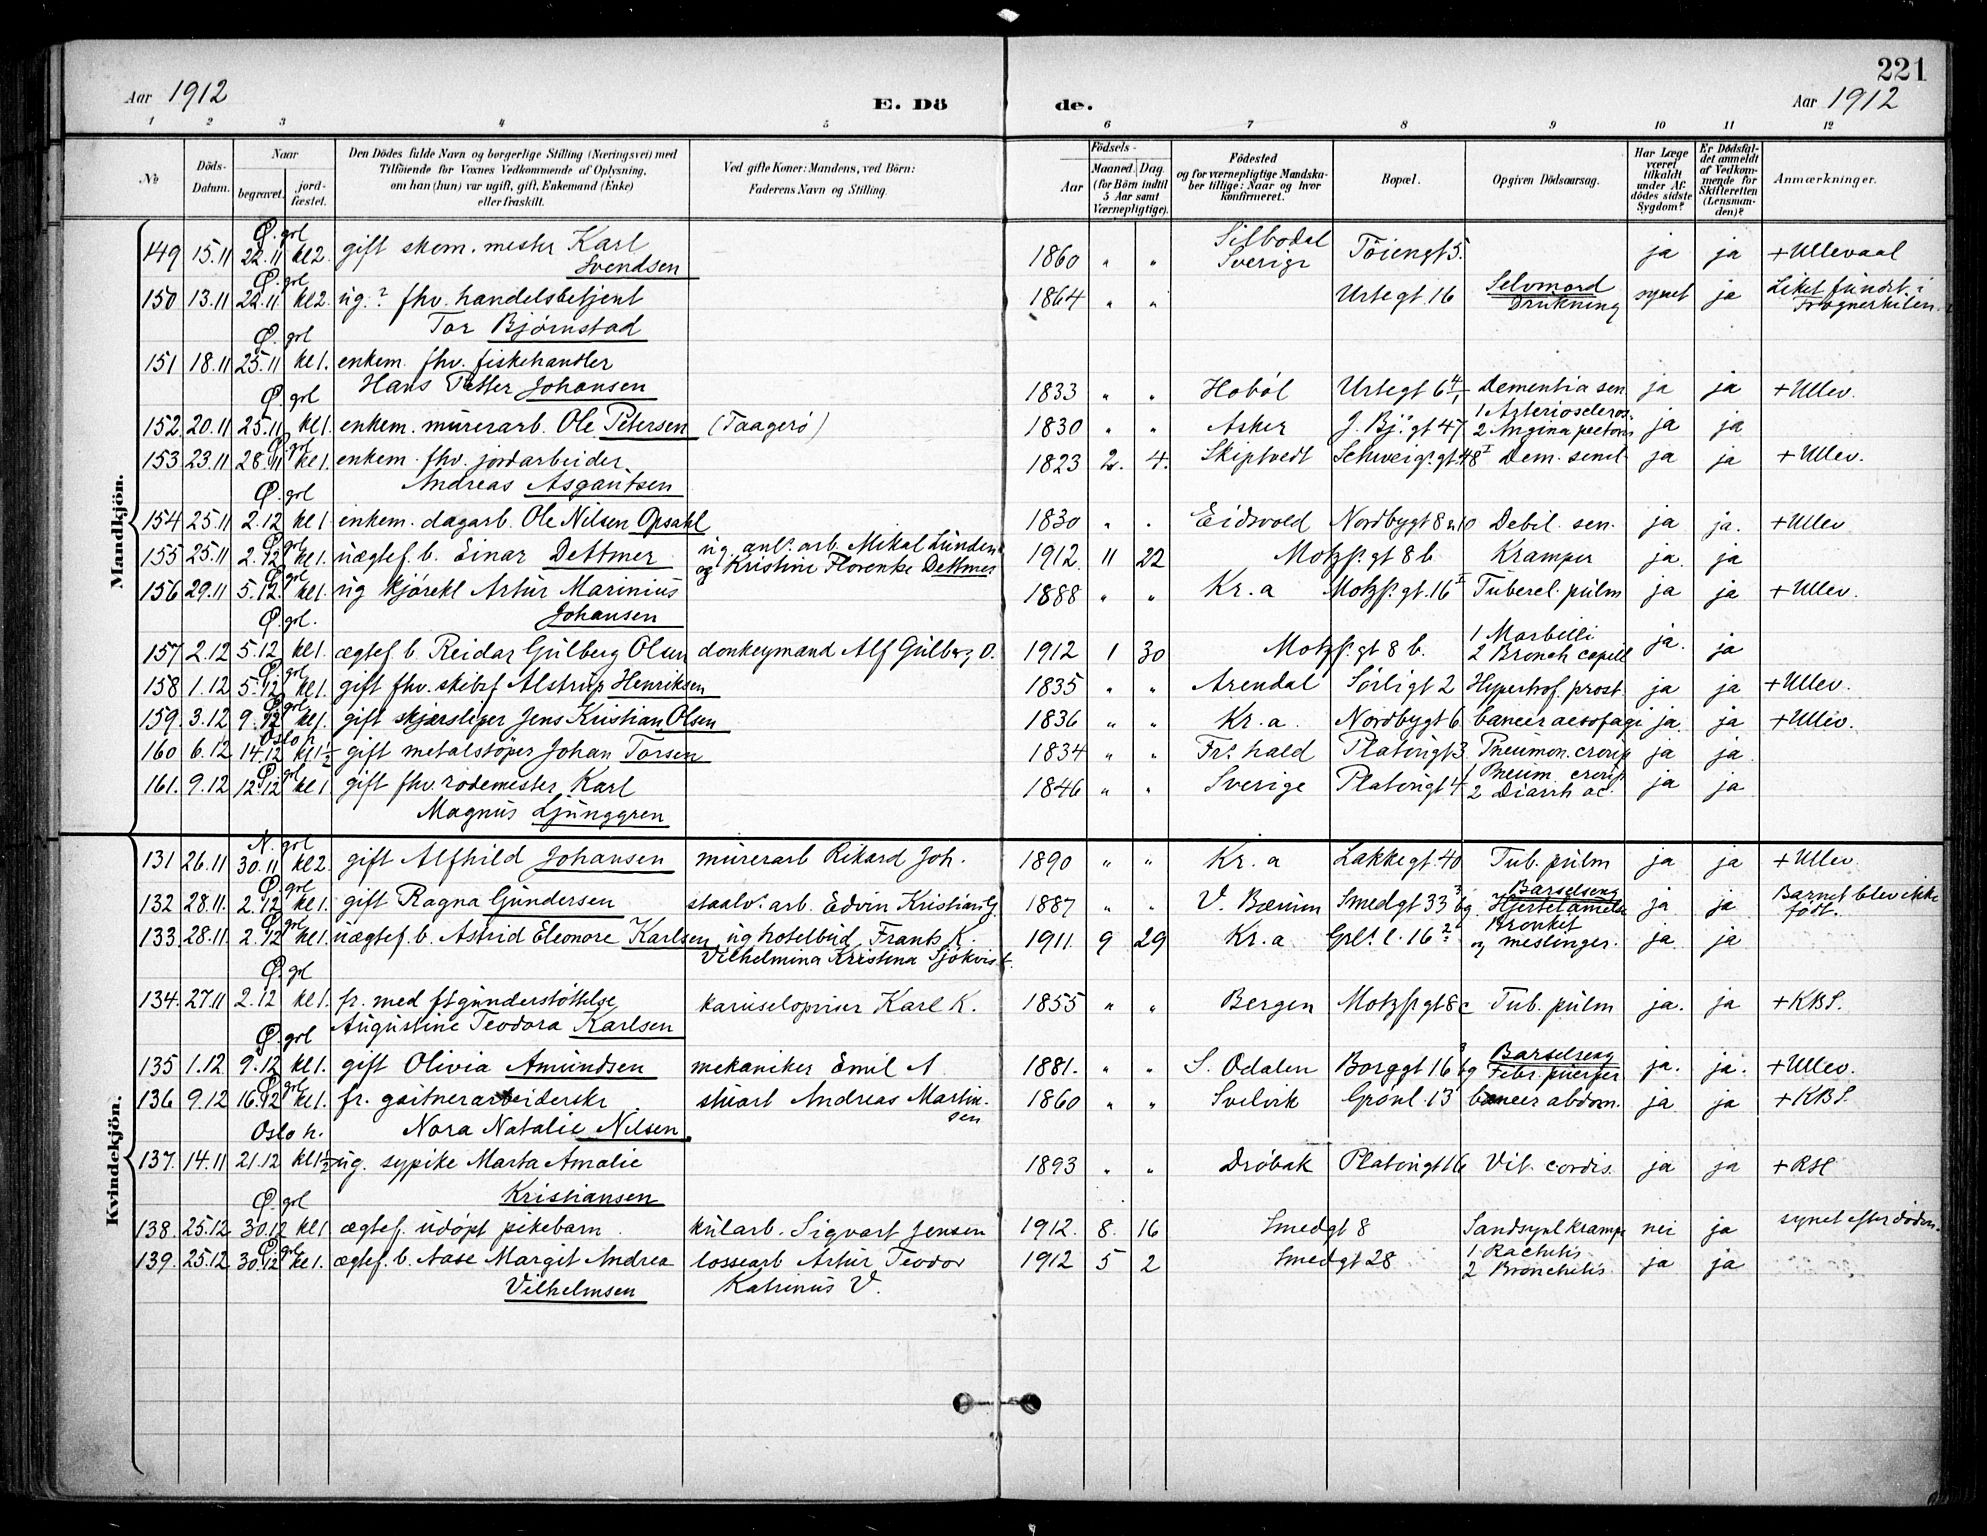 221
Aar 1912
E. Döde.
Aar 1912
1 2 3 4 5 6 7 8 9 10 11 12
№
Döds-Datum.
Naar
begravet.
jordfæstet.
Den Dödes fulde Navn og borgerlige Stilling (Næringsvei) med Tilföiende for Voxnes Vedkommende af Oplysning, om han (hun) var ugift, gift, Enkemand (Enke) eller fraskilt.
Ved gifte Koner: Mandens, ved Börn: Faderens Navn og Stilling.
Födsels-
Aar
Maaned. Dag.
(for Börn indtil 5 Aar samt Værnepligtige).
Födested og for værnepligtige Mandskaber tillige: Naar og hvor konfirmeret.
Bopæl.
Opgiven Dödsaarsag.
Har Læge været tilkaldt under Afdödes sidste Sygdom?
Er Dödsfaldet anmeldt af Vedkommende for Skifteretten (Lensmanden)?
Anmærkninger.
Mandkjön.
Ø. grl
149 15.11 22.11 kl 2. gift skom. mester Karl Svendsen 1860 " " Silbodal Sverige Töiengt 5. ja ja + Ullevaal
Ø. grl
150 13.11 22.11 kl 2. ug.? fhv. handelsbetjent 1864 " " Urtegt. 16 Selvmord Drukning synet ja Liket fundet i Frognerkilen.
Tor Bjørnstad
Ø. grl
151 18.11 25.11 kl 1. enkem. fhv. fiskehandler
Hans Petter Johansen 1833 " " Hobøl Urtegt 6 Dementia sen. ja ja + Ullev.
Ø. grl
152. 20.11 25.11 kl 1. enkem. murerarb. Ole Petersen (Taagerø) 1830 " " Asker J. Bj. gt 47 1 Arterioscleros. 2 Angina pectoris ja ja
Ø. grl
153 23.11 28.11 kl 1. enkem. fhv. jordarbeider 1823 2. 4. Skiptvedt Schweigs. gt. 48 Dem. senil ja ja + Ullev.
Andreas Asgautsen
Ø. grl
154 25.11 2.12 kl 1 enkem. dagarb. Ole Nilsen Opsahl 1830 " " Eidsvold Nordbygt 8 n 10 Debil. sen. ja ja. + Ullev
Ø. grl
155 25.11 2.12 kl 1. uægtef. b. Einar Dettmer ug. anl. arb. Mikal Lunden og Kristine Florentse Dettmer 1912. 11 22 Motzf. gt 8 b. Kramper ja. ja
Ø. grl
156 29.11 5.12. kl 1. ug kjørekl Artur Marinius 1888 " " Kr. a Motzf. gt. 16 Tubercl. pulm ja ja + Ullev.
Johansen
Ø. grl.
157 2.12 5.12 kl 1. ægtef. b. Reidar Gulberg Olsen donkeymand Alf Gulberg O. 1912 1 30 Motzf. gt 8 b. 1 Morbilli 2 Bronch capill ja. ja
Ø. grl
158 1.12 5.12 kl 1. gift fhv. skibsf Alstrup Henriksen 1835 " " Arendal Sørligt 2 Hypertrof. prost. ja ja + Ullev.
Ø. grl
159. 3.12 9.12 kl 1. gift skjærsliper Jens Kristian Olsen 1836 " " Kr. a. Nordbygt 6 Cancer aesofagi ja. ja + Ullev.
Oslo h.
160 6.12 14.12 kl 1½ gift metalstøper Johan Torsen 1834 " " Fr. hald Platougt 3 Pneumon. croup ja ja
Ø. grl
161. 9.12 12.12 kl 1. gift fhv. rodemester Karl 1846 " " Sverige Platougt 4 1 Pneum. croup 2 Diarrh ac. ja ja
Magnus Ljunggren
Kvindekjön.
N. grl
131 26.11 30.11 kl 2 gift Alfhild Johansen murerarb Rikard Joh. 1890 " " Kr. a Lakkegt. 40 Tub. pulm ja ja + Ullev.
Ø. grl
132 28.11. 2.12 kl 1. gift Ragna Gundersen staalv. arb. Edvin Kristian G. 1887 " " V. Bærum Smedgt 33 Barselseng og Hjertelamelse ja ja Barnet blev ikke født.
Ø. grl
133 28.11. 2.12 kl 1. uægtef. b. Astrid Eleonore Karlsen ug hotelbud Frants K. Vilhelmina Kristina Sjökvist. 1911. 9 29 Kr. a Grl. l. 16 Bronket og meslinger. ja ja
Ø. grl
134. 27.11 2.12 kl 1. fr. med ftgunderstöttelse karuseloprier Karl K. 1855 " " Bergen Motzf. gt 8 c Tub. pulm ja. ja + KBS.
Augustine Teodora Karlsen
Ø. grl
135 1.12 9.12 kl 1. gift Olivia Amundsen mekaniker Emil A 1881. " " S. Odalen Borggt 16 Barselseng og Febr. puerper ja. ja. + Ullev.
Ø. grl
136 9.12 16.12 kl 1. fr. gartnerarbeiderske stuart Andreas Martinsen 1860 " " Svelvik Grønl. 13 Cancer abdom. ja ja + KBS.
Nora Natalie Nilsen
Oslo h.
137. 14.11 21.12 kl 1½ ug. sypike Marta Amalie 1893 " " Drøbak Platougt 16 Vit. cordis. ja ja + RH
Kristiansen
Ø. grl
138. 25.12. 30.12 kl 1 ægtef. udøpt pikebarn kularb. Sigvart Jensen 1912. 8. 16 Smedgt 8 Sandsynl krampe nei ja synet efter döden.
Ø. grl
139. 25.12 30.12 kl 1. ægtef. b. Aase Margit Andrea lossearb Artur Teodor 1912 5 2 Smedgt 28 1. Rachitis 2 Bronchitis ja ja
Vilhelmsen Katrinus V.